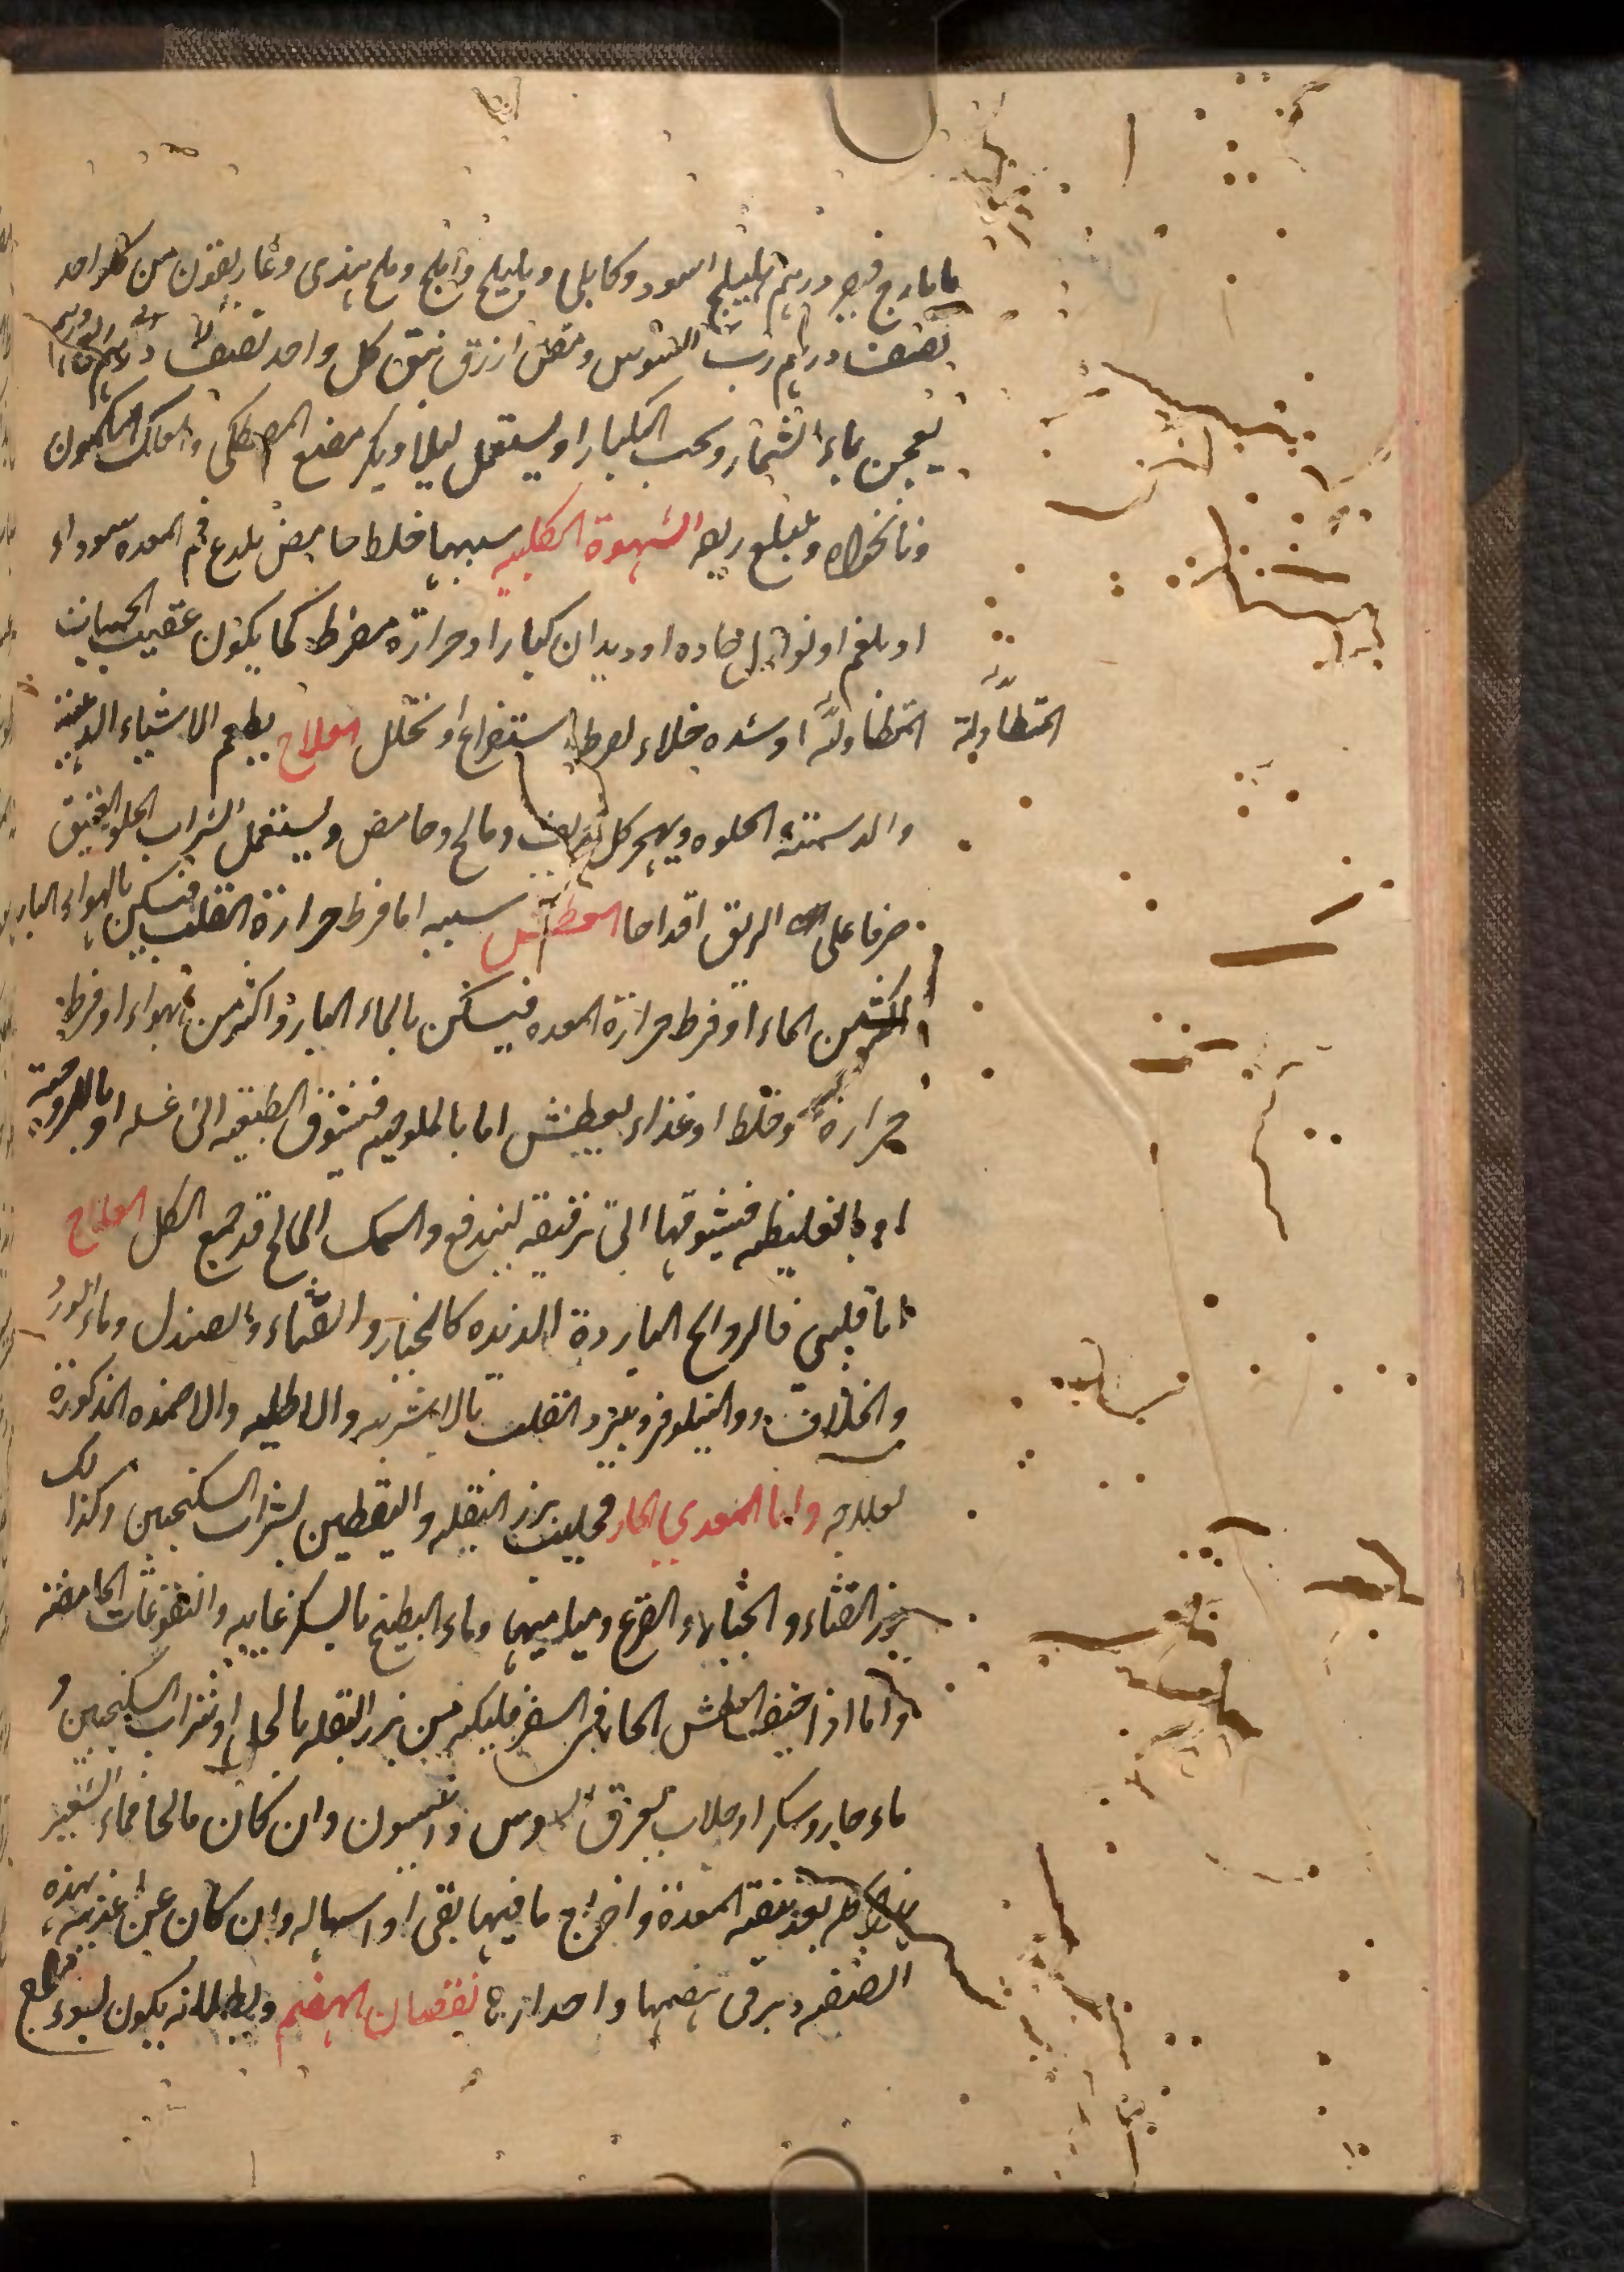 ايارج فيقر درهم هليلج اسود وكابلى وبليلج وابلج وملح هندى وغاريقون من كل واحد
نصف درهم رب السوس ومقل ازرق من كل واحد نصف درهم
يعجن بماء الشمار ويحبب كبارا ويستعمل ليلا ويكر مضغ المصطكى والعلك والكمون
ونانخواه ويبلع ريقه الشهوة الكلبيه سببها خلط حامض يلدغ فم المعده سوداء
او بلغم او نوازل حاده او ديدان كبار او حرارة مفرط كما يكون عقيب الحميات
المتطاولة المتطاولة او شده خلاء لفرط استفراغ او تحلل العلاج يطعم الاشياء الدهنية
والدسمة الحلوه ويهجر كل عفص ومالح وحامض ويستعمل الشراب الحلو العتيق
صرفا على الريق اقداحا العطش سببه اما فرط حرارة القلب فيسكن بالهواء البارد
اكثر من الماء او فرط حرارة المعده فيسكن بالماء البارد اكثر من الهواء او فرط
حرارة وخلط او غذاء يعطش اما بالملوحيه فيشوق الطبيعه الى غسله او باللزوجية
او بالغليظه فيشوقها الى ترقيقه ليندفع والسمك المالح قد جمع الكل العلاج
اما قلبى فالروائح الباردة اللذيذه كالخيار والقثاء والصندل وماء الورد
والخلاف والنيلوفر ويبرد القلب بالاشربه والاطليه والاضمده المذكورة
لعلاجه واما المعدى الحار فحليب بزر البقله واليقطين بشراب السكنجبين وكذلك
بزر القثاء والخيار والقرع ومياميها وماء البطيخ بالسكر غايه والنقوعات الحامضه
واما اذا خيف العطش الحار فى السفر فليكثر من بزر البقله بالخل او شراب السكنجبين و
ماء حار وسكر او جلاب بعرق السوس وانيسون وان كان مالحا فماء الشعير
كله بعد تنقيه المعدة واخراج ما فيها بقى او اسهاله وان كان عن اغذيه هذه
الصفه دبر فى هضمها واحدارها نقصان الهضم وبطلانه يكون لسوء مزاج